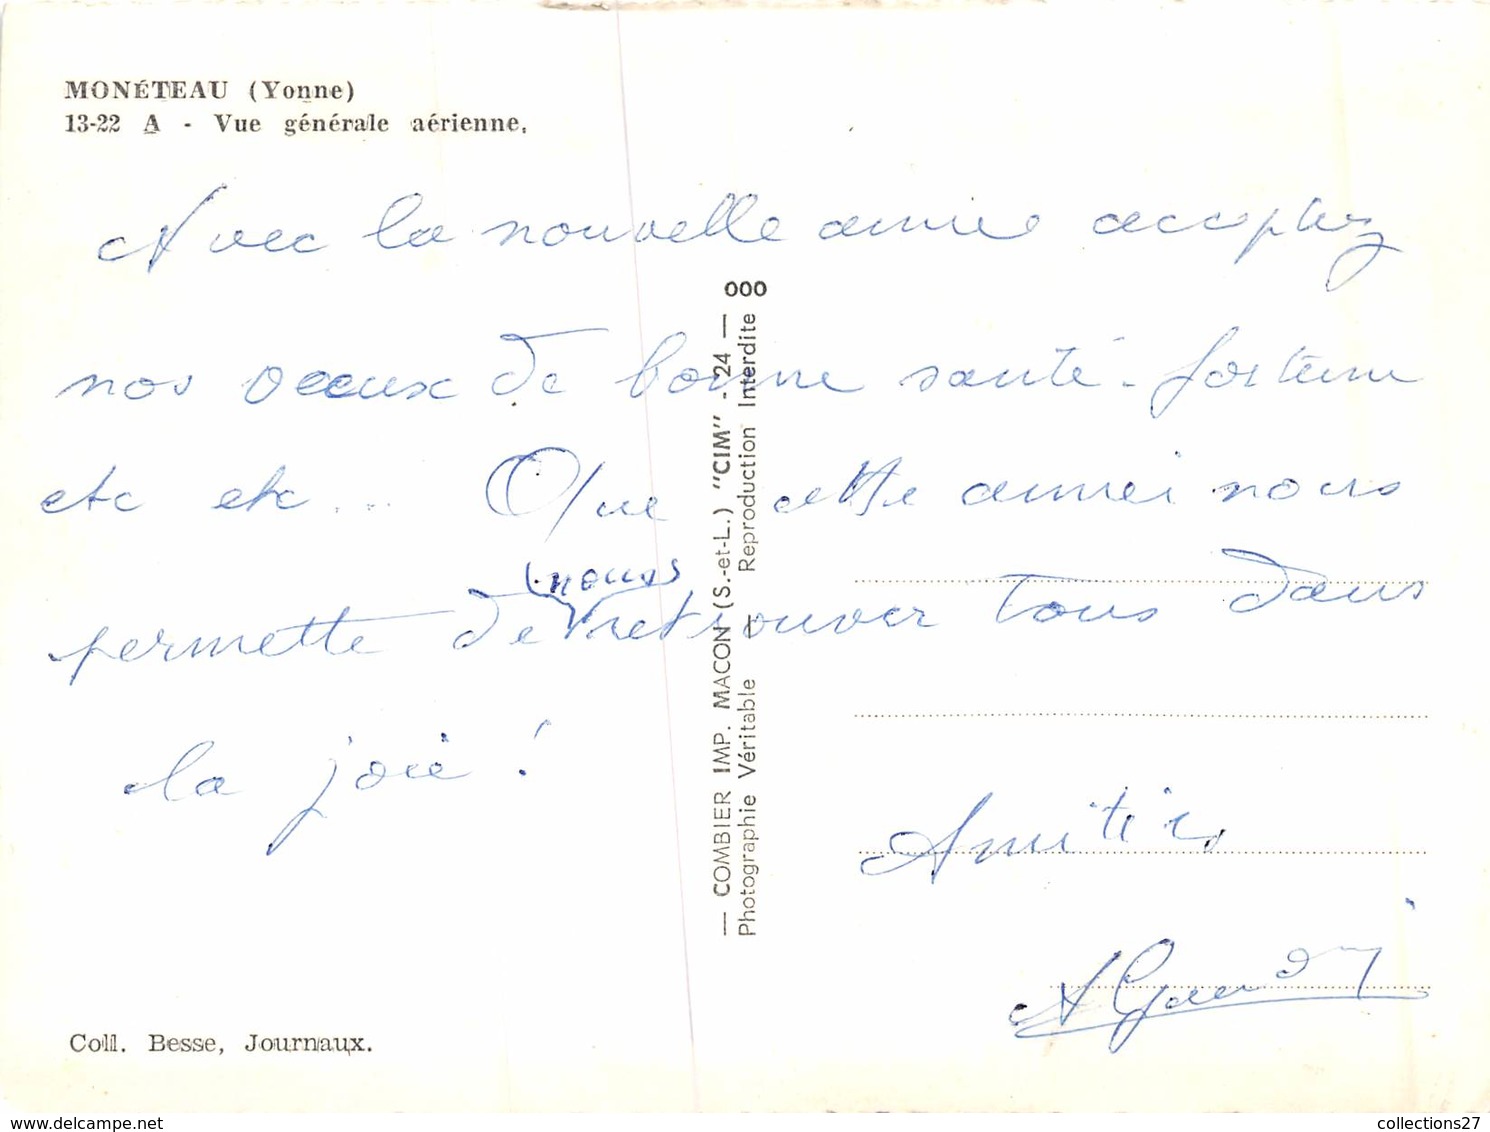 MONÉTEAU (Yonne)
13-22 A - Vue générale aérienne.
Avec la nouvelle année acceptez
nos voeux de bonne santé - fortune
etc etc ... Que cette année nous
nous
permette de retrouver tous dans
la joie !
Amitiés
— COMBIER IMP. MACON (S.-et-L.) "CIM" - 24 —
Photographie Véritable — Reproduction Interdite
000
Coll. Besse, Journaux.
www.delcampe.net
collections27